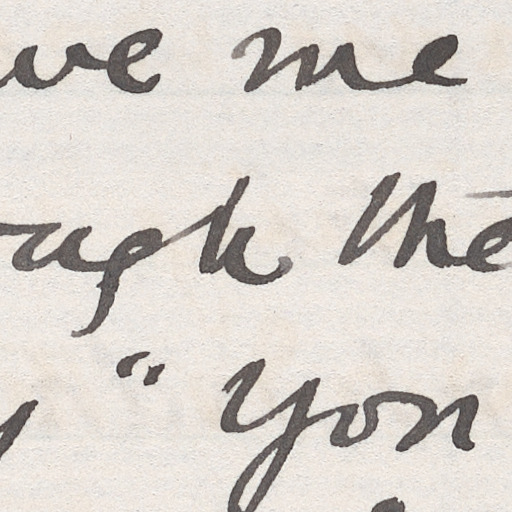 ve me
ugh the
" You